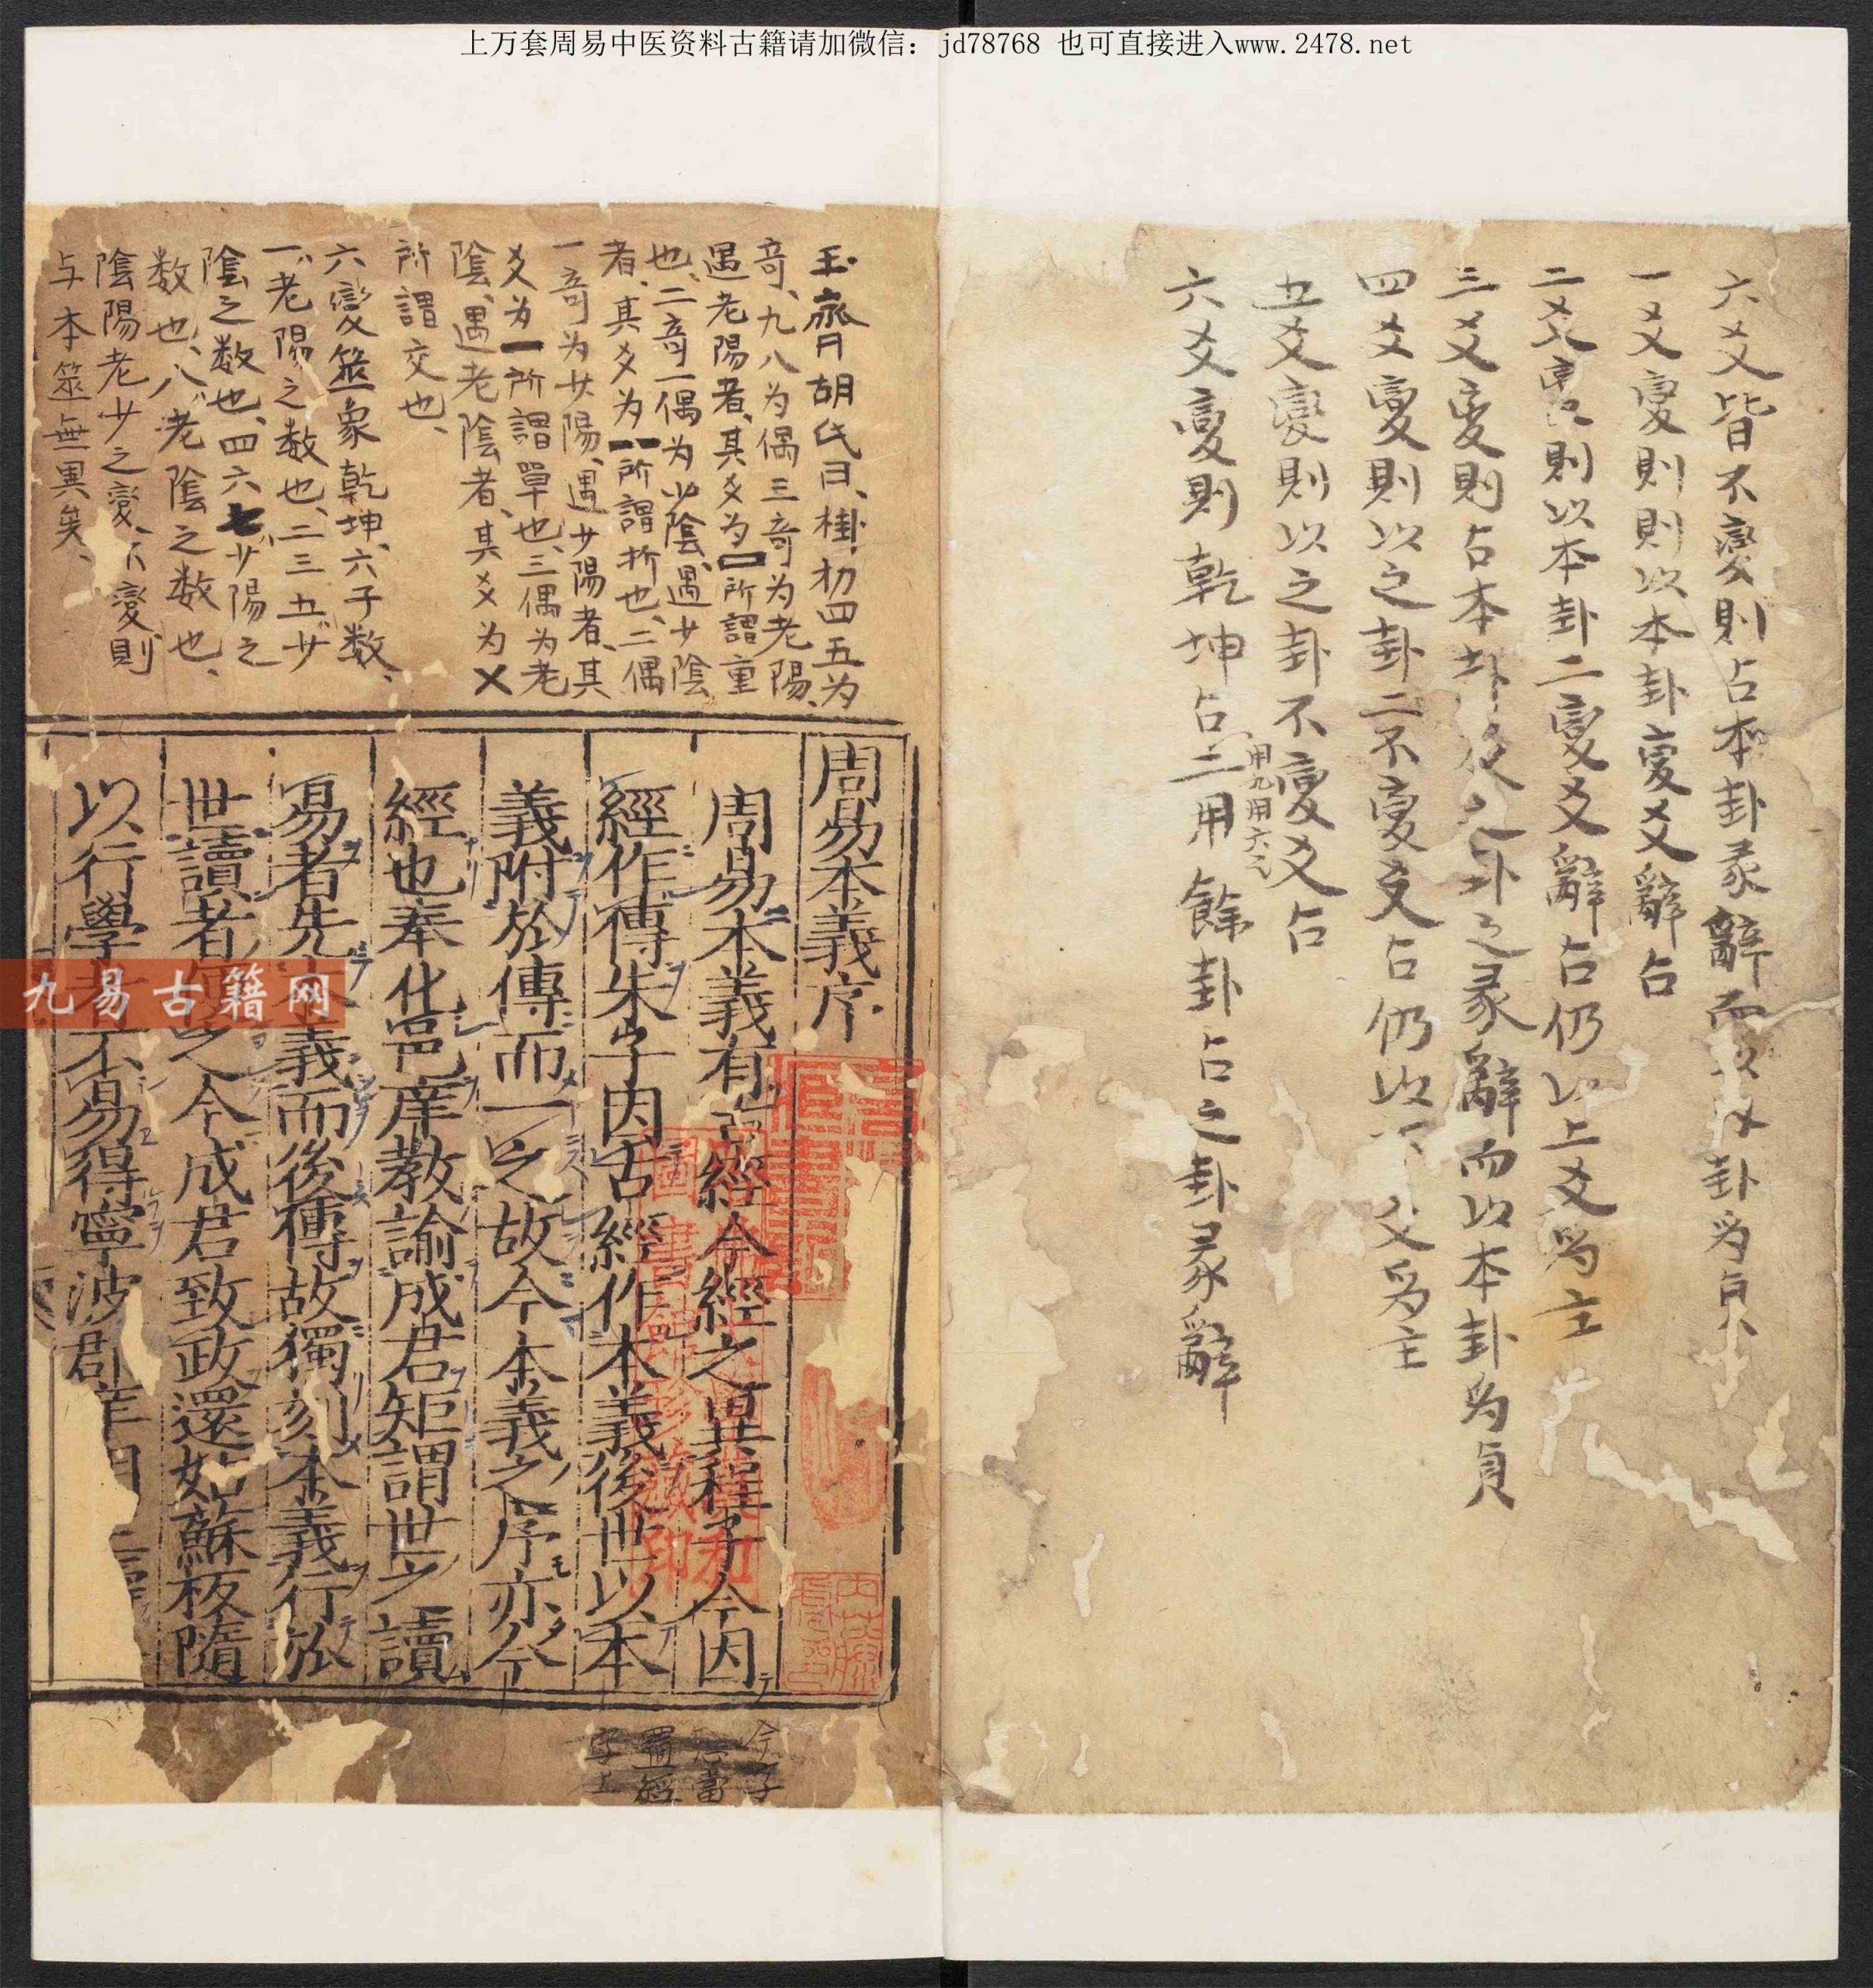 上万套周易中医资料古籍请加微信：jd78768 也可直接进入www.2478.net
六爻皆不變則占本卦彖辭而以卦爲貞
一爻變則以本卦變爻辭占
二爻則以本卦二變爻辭占仍以上爻爲主
三爻變則占本卦及之卦之彖辭而以本卦爲貞
四爻變則以之卦二不變爻占仍以下爻爲主
五爻變則以之卦不變爻占
六爻變則乾坤占二用餘卦占之卦彖辭
用九用六
玉齋胡氏曰、掛扐四五为
奇、九八为偶三奇为老陽、
遇老陽者、其爻为口所謂重
也、二奇一偶为少陰、遇少陰
者、其爻为一所謂拆也、二偶
一奇为少陽、遇少陽者、其
爻为一所謂單也、三偶为老
陰、遇老陰者、其爻为乂
所謂交也、
六變筮象乾坤、六子数、
一、老陽之数也、二三五少
陰之数也、四六七少陽之
数也、八、老陰之数也、
陰陽老少之變、不變則
与本筮無異矣、
周易本義序
周易本義有古經今經之異程子今因
經作傳朱子因古經作本義後世以本
義附於傳而一之故今本義之序亦今
經也奉化邑庠教諭成君矩謂世之讀
易者先本義而後傳故獨刻本義行於
世讀者便之今成君致政還姑蘇板隨
以行學者不易得寧波郡庠
九易古籍网